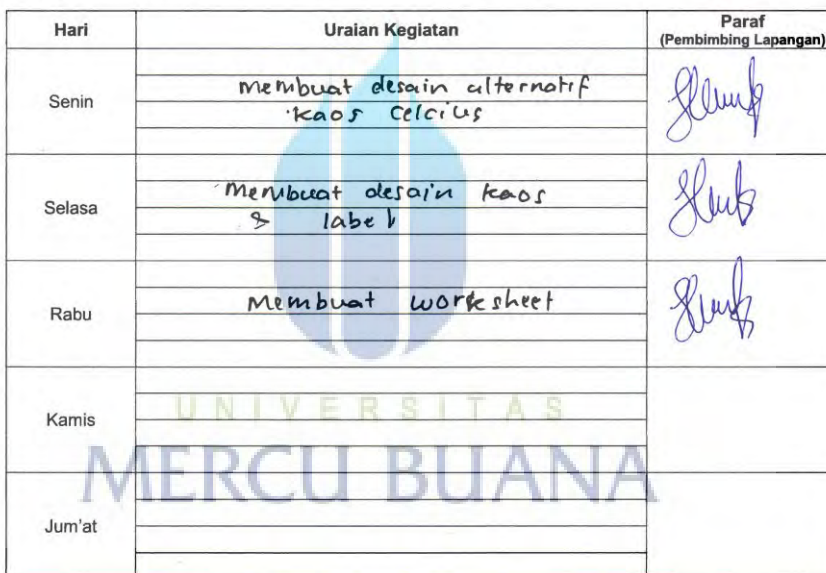 Hari Uraian Kegiatan Paraf
(Pembimbing Lapangan)
Senin
membuat desain alternatif
kaos Celcius
Selasa
Membuat desain kaos
& label
Rabu
Membuat worksheet
Kamis
UNIVERSITAS
MERCU BUANA
Jum'at